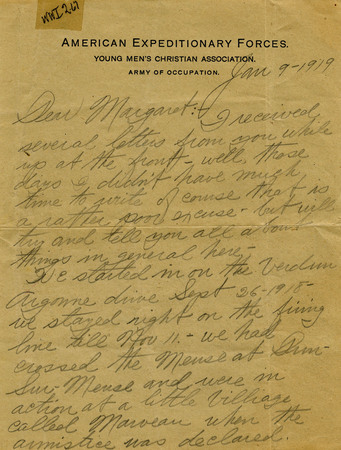 WWI 267
AMERICAN EXPEDITIONARY FORCES.
YOUNG MEN'S CHRISTIAN ASSOCIATION.
ARMY OF OCCUPATION.
Jan 9-1919
Dear Margaret:- I received
several letters from you while
up at the front- well, those
days I didn't have much
time to write of course that is
a rather poor excuse- but will
try and tell you all about
things in general here-
We started in on the Verdun
Argonne drive Sept 26-1918-
we stayed right on the firing
line till Nov 11.- we had
crossed the Meuse at Dun-
Sur-Meuse and were in
action at a little Village
called when the
armistice was declared.